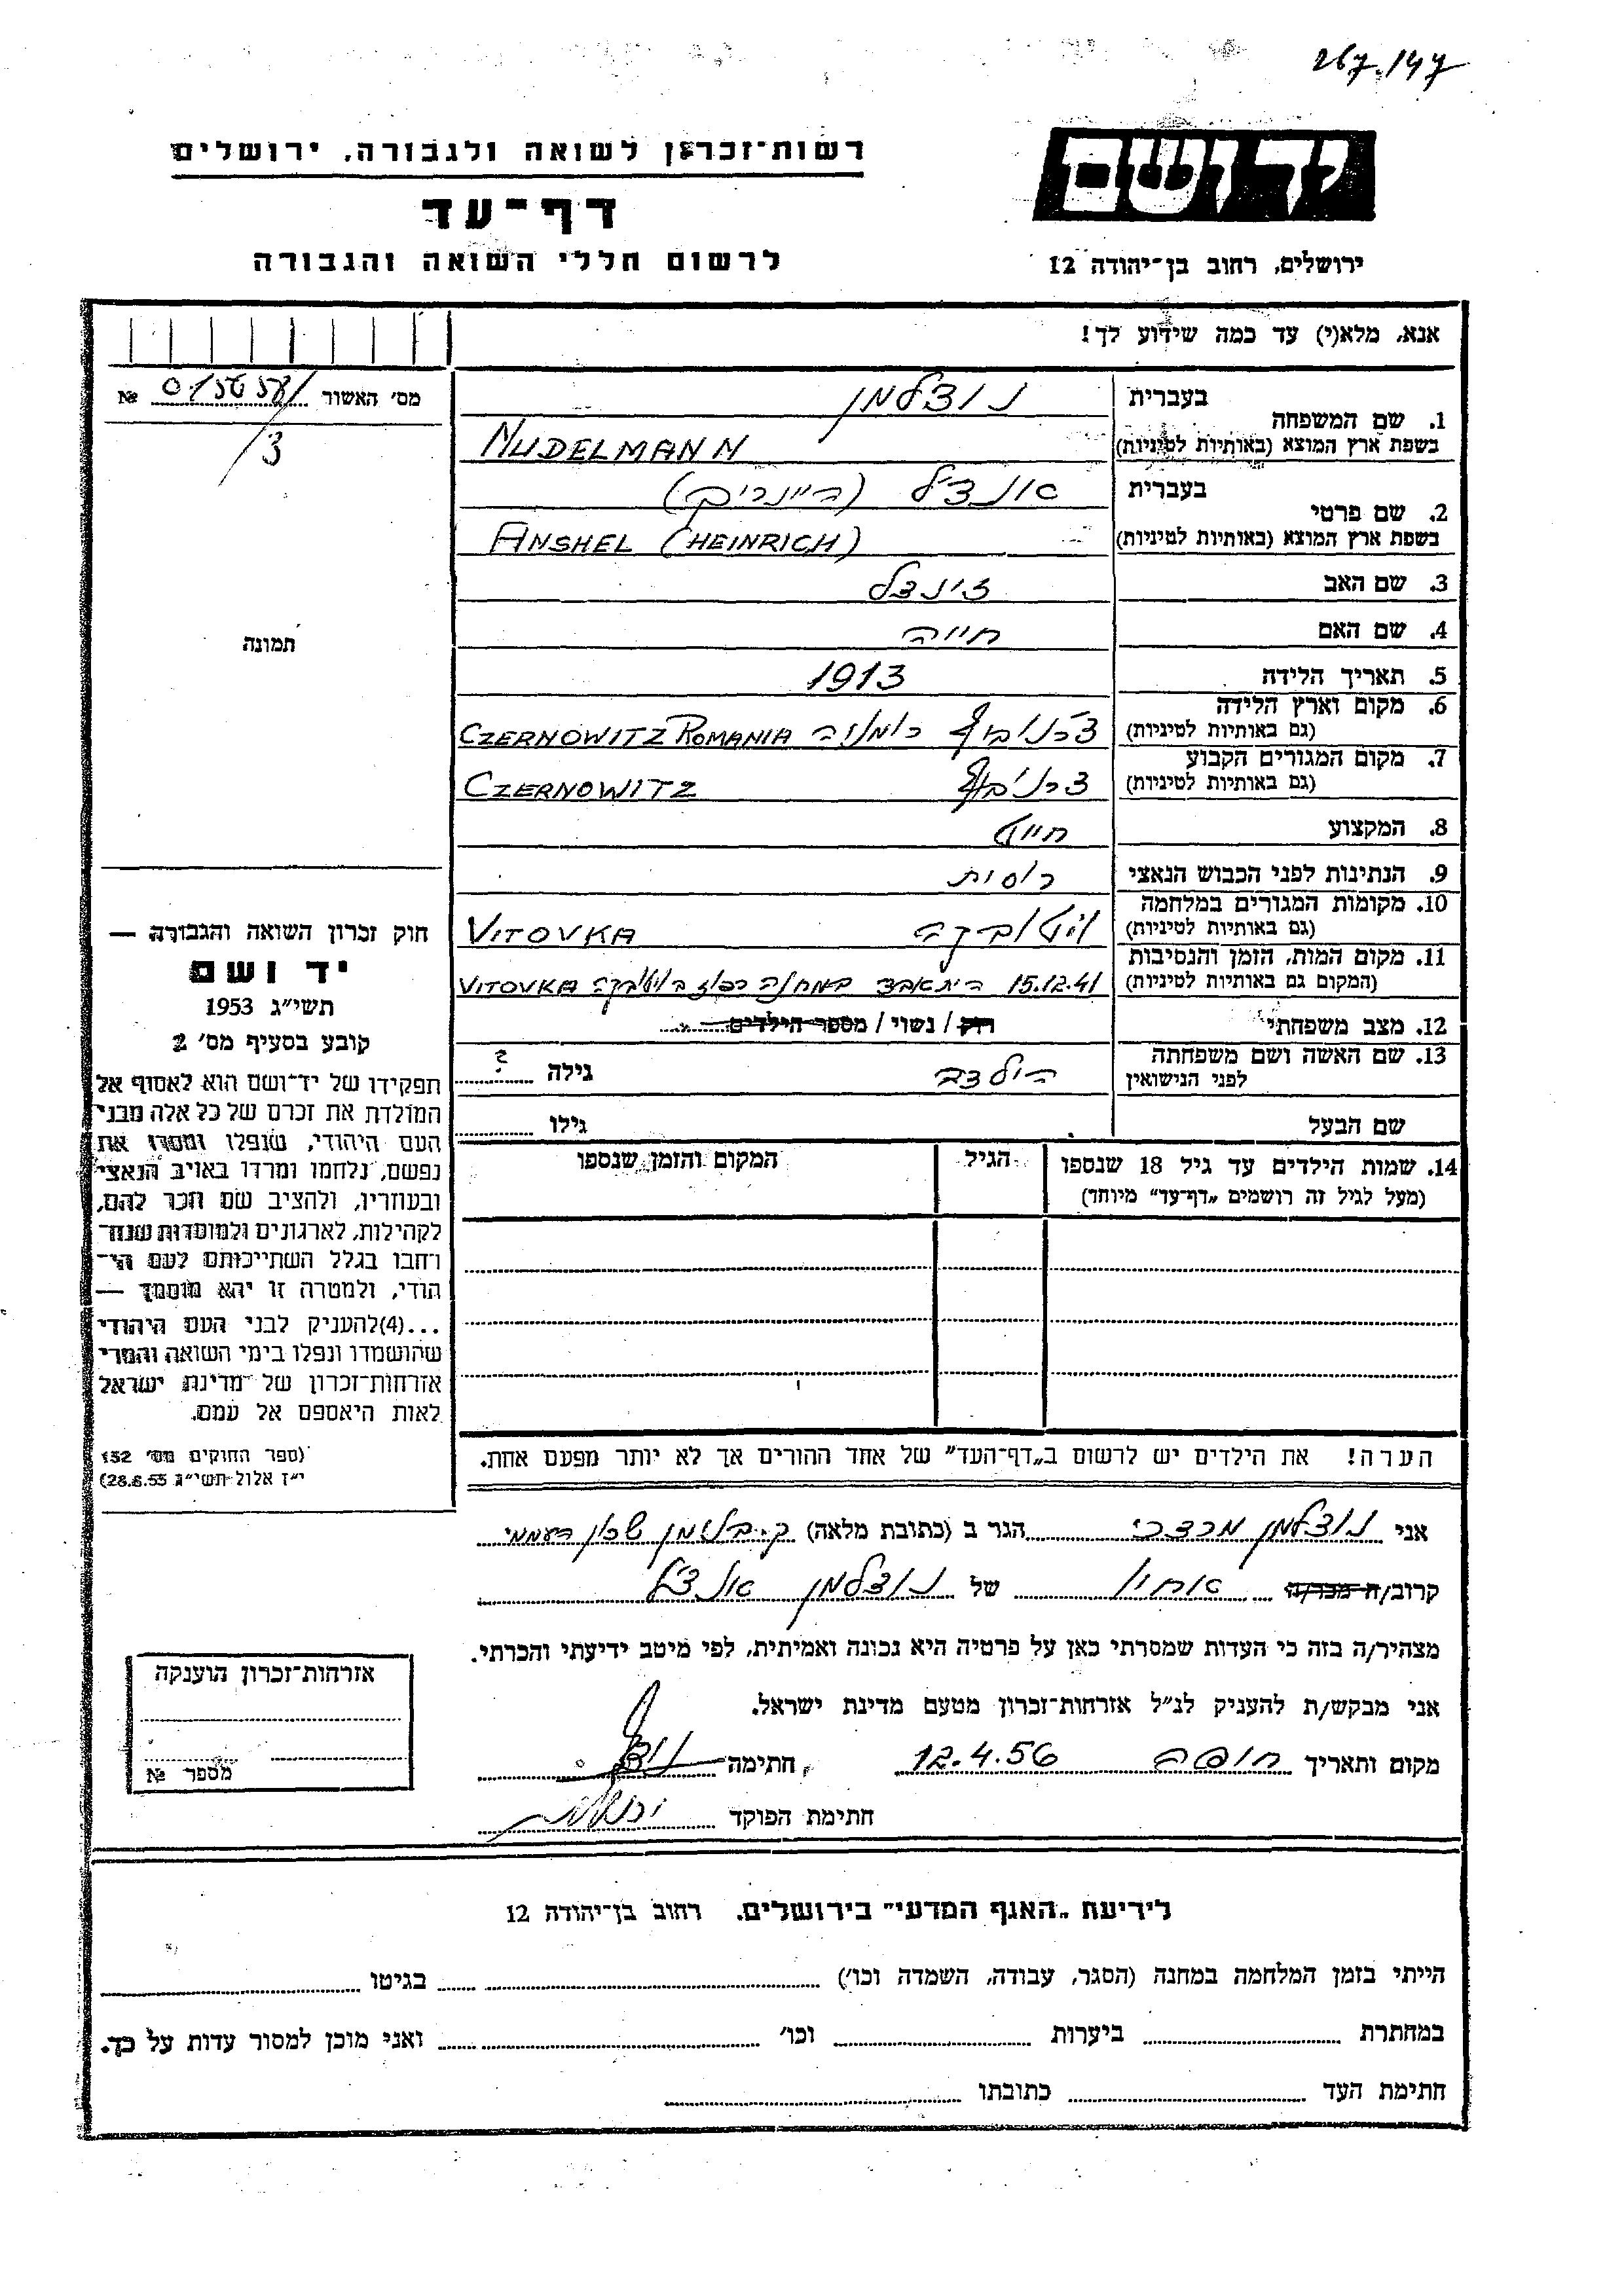 267.147
יד ושם
רשות־זכרון לשואה ולגבורה, ירושלים
דף־עד
לרשום חללי השואה והגבורה
ירושלים, רחוב בן־יהודה 12
אנא, מלא(י) עד כמה שידוע לך!
מס' האשור № 
/3
תמונה
1. שם המשפחה בעברית נודלמן
בשפת ארץ המוצא (באותיות לטיניות) NUDELMANN
2. שם פרטי בעברית אנדיל (היינריך)
בשפת ארץ המוצא (באותיות לטיניות) ANSHEL (HEINRICH)
3. שם האב זינדל
4. שם האם חייה
5. תאריך הלידה 1913
6. מקום וארץ הלידה (גם באותיות לטיניות) צ'רנוביץ רומניה CZERNOWITZ ROMANIA
7. מקום המגורים הקבוע (גם באותיות לטיניות) צרנוביץ CZERNOWITZ
8. המקצוע חייט
9. הנתינות לפני הכבוש הנאצי רוסית
10. מקומות המגורים במלחמה (גם באותיות לטיניות) ויטובקה VITOVKA
11. מקום המות, הזמן והנסיבות (המקום גם באותיות לטיניות) 15.12.41 התאבד במחנה רכוז בויטובקה VITOVKA
12. מצב משפחתי רוק / נשוי / מספר הילדים
13. שם האשה ושם משפחתה לפני הנישואין הולדה גילה ?
שם הבעל גילו
14. שמות הילדים עד גיל 18 שנספו (מעל לגיל זה רושמים „דף־עד" מיוחד) הגיל המקום והזמן שנספו
חוק זכרון השואה והגבורה —
יד ושם
תשי"ג 1953
קובע בסעיף מס' 2
תפקידו של יד־ושם הוא לאסוף אל
המולדת את זכרם של כל אלה מבני
העם היהודי, שנפלו ומסרו את
נפשם, נלחמו ומרדו באויב הנאצי
ובעוזריו, ולהציב שם וזכר להם,
לקהילות, לארגונים ולמוסדות שנח־
רחבו בגלל השתייכותם לעם הי־
הודי, ולמטרה זו יהא מוסמך —
...(4)להעניק לבני העם היהודי
שהושמדו ונפלו בימי השואה והמרי
אזרחות־זכרון של מדינת ישראל
לאות היאספם אל עמם.
(ספר החוקים מס' 132
י"ז אלול תשי"ג 28.8.53)
הערה! את הילדים יש לרשום ב„דף־העד" של אחד ההורים אך לא יותר מפעם אחת.
אני נודלמן מרדכי הגר ב (כתובת מלאה) שכון העממי
קרוב/ה מכר/ה אחיו של נודלמן אנדיל
מצהיר/ה בזה כי העדות שמסרתי כאן על פרטיה היא נכונה ואמיתית, לפי מיטב ידיעתי והכרתי.
אני מבקש/ת להעניק לנ"ל אזרחות־זכרון מטעם מדינת ישראל.
מקום ותאריך 12.4.56 חתימה
חתימת הפוקד
אזרחות־זכרון הוענקה
מספר №
לידיעת „האגף המדעי" בירושלים. רחוב בן־יהודה 12
הייתי בזמן המלחמה במחנה (הסגר, עבודה, השמדה וכו') בגיטו
במחתרת ביערות וכו' ואני מוכן למסור עדות על כך.
חתימת העד כתובתו